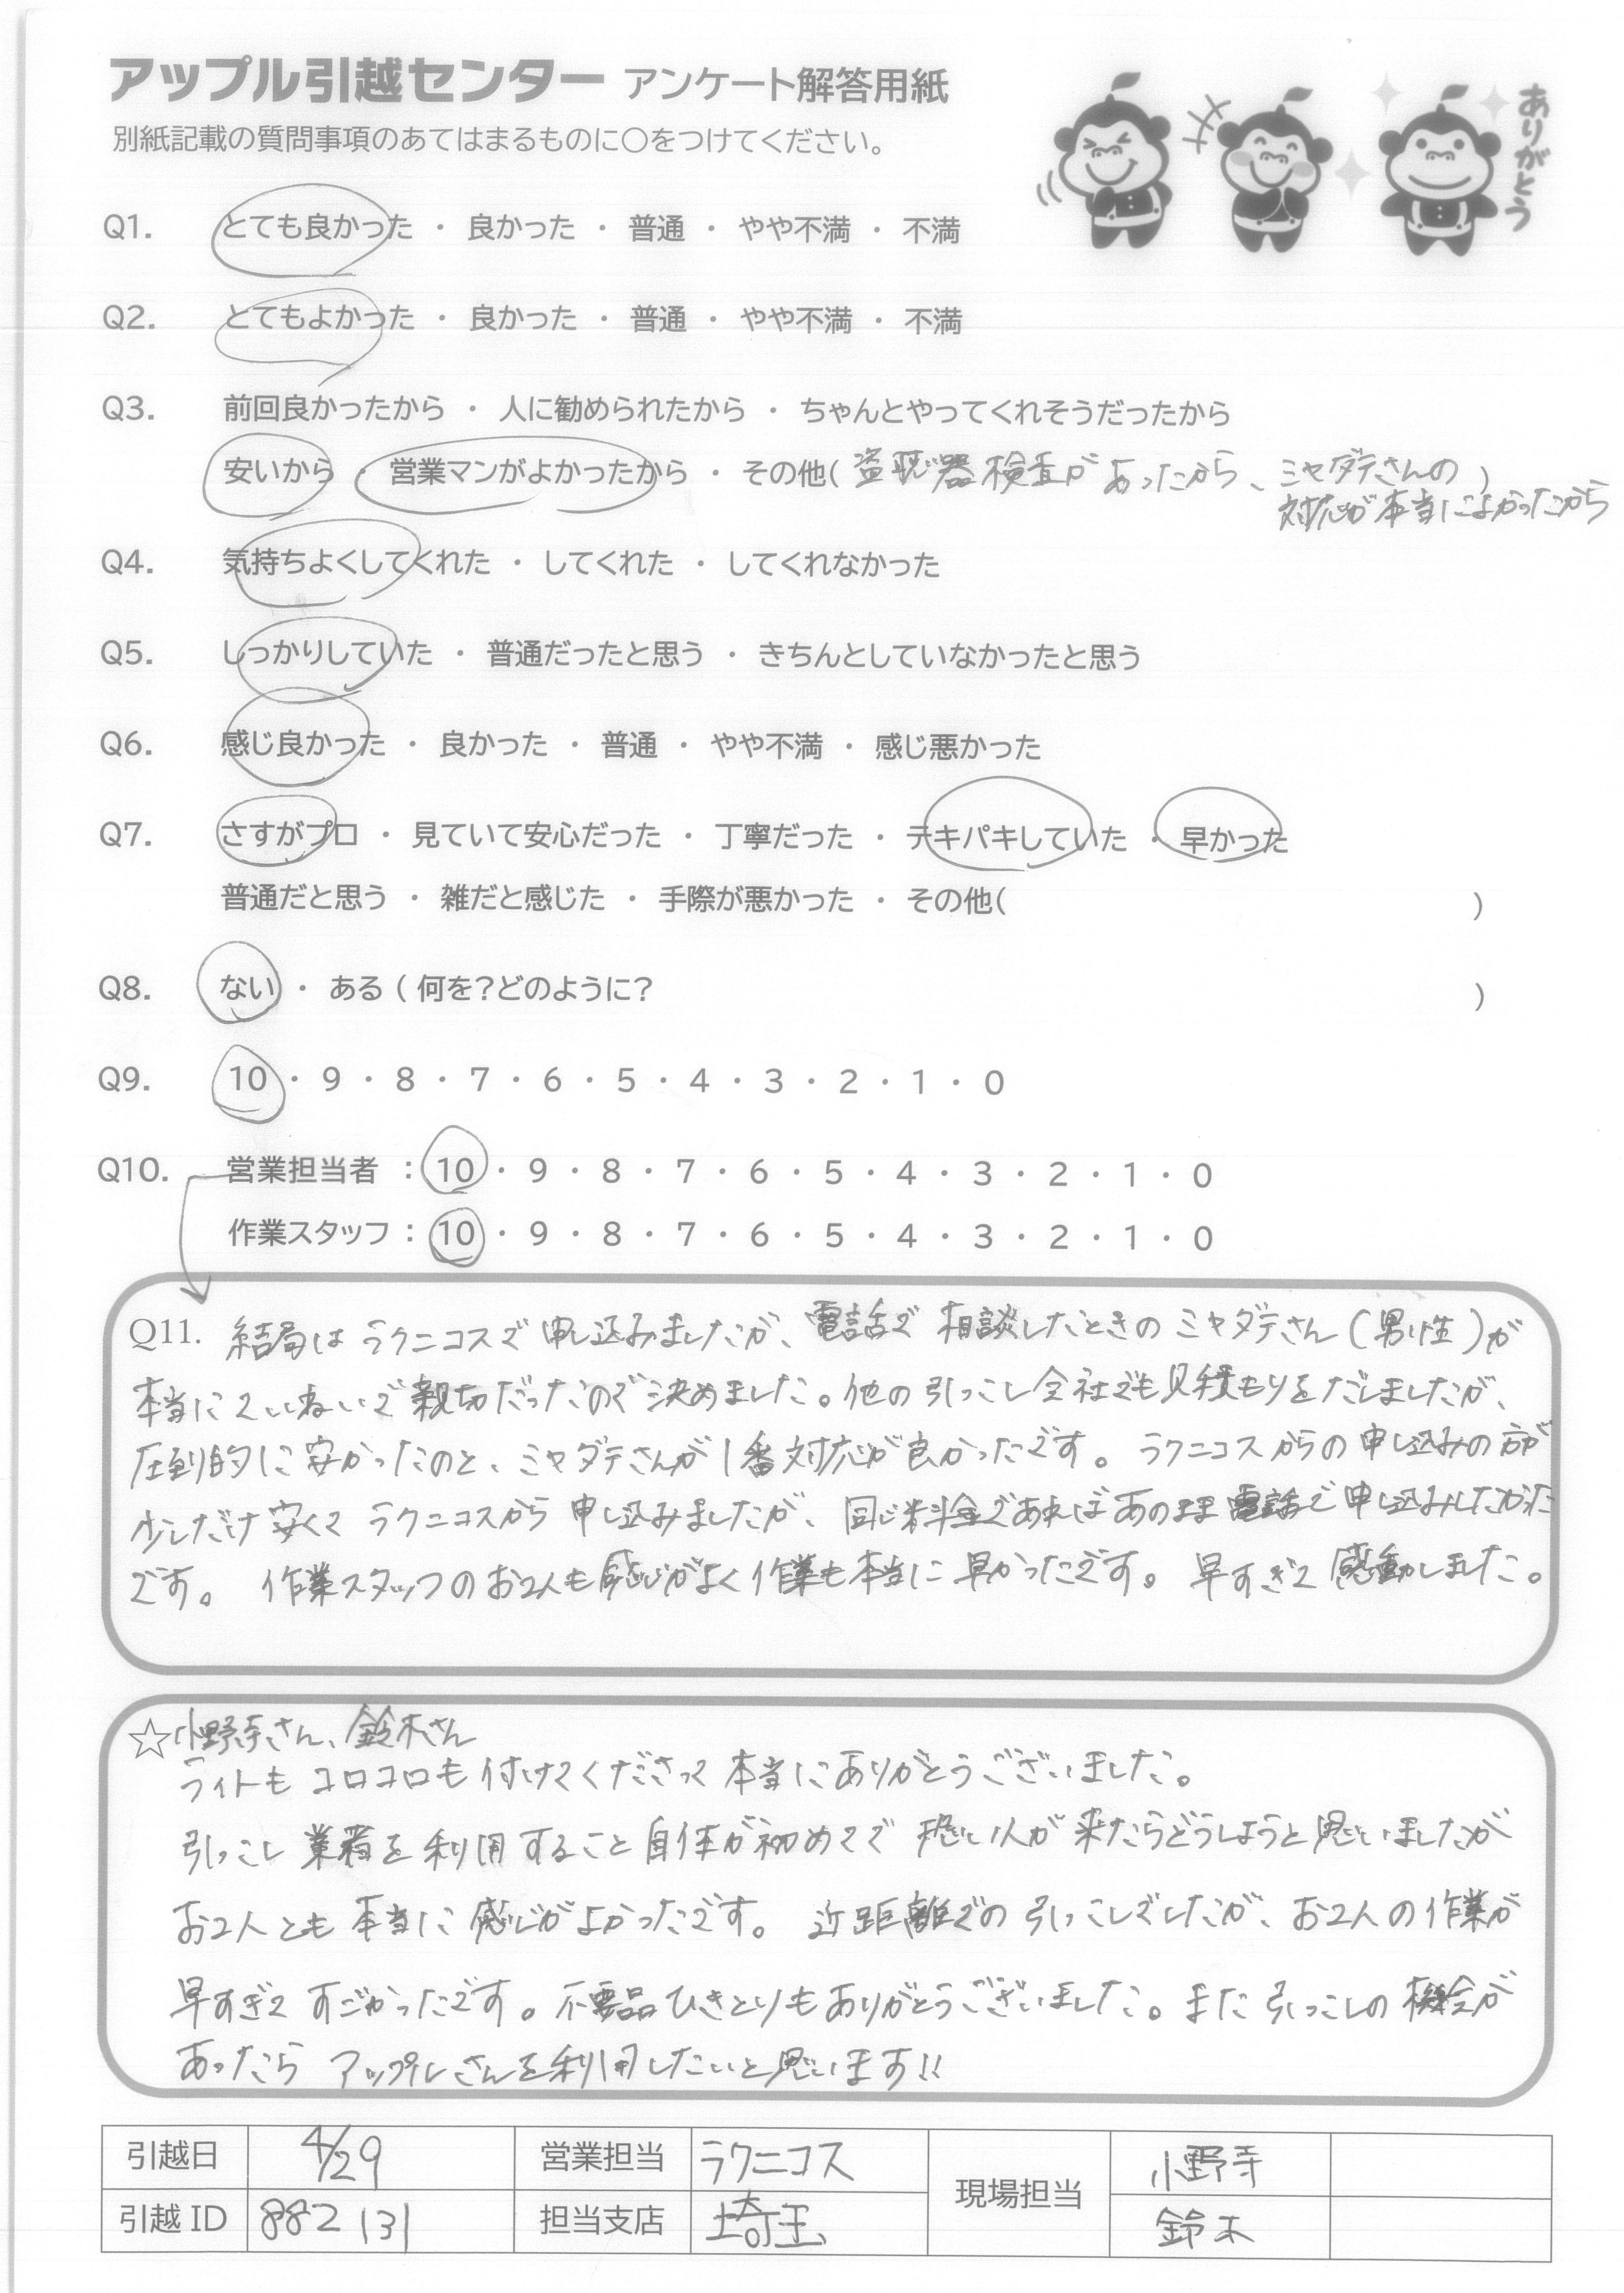 アップル引越センター アンケート解答用紙
別紙記載の質問事項のあてはまるものに〇をつけてください。
ありがとう
Q1. とても良かった ・ 良かった ・ 普通 ・ やや不満 ・ 不満
Q2. とてもよかった ・ 良かった ・ 普通 ・ やや不満 ・ 不満
Q3. 前回良かったから ・ 人に勧められたから ・ ちゃんとやってくれそうだったから
安いから ・ 営業マンがよかったから ・ その他( 盗聴器検査があったから、ミヤダテさんの )
対応が本当によかったから
Q4. 気持ちよくしてくれた ・ してくれた ・ してくれなかった
Q5. しっかりしていた ・ 普通だったと思う ・ きちんとしていなかったと思う
Q6. 感じ良かった ・ 良かった ・ 普通 ・ やや不満 ・ 感じ悪かった
Q7. さすがプロ ・ 見ていて安心だった ・ 丁寧だった ・ テキパキしていた ・ 早かった
普通だと思う ・ 雑だと感じた ・ 手際が悪かった ・ その他( )
Q8. ない ・ ある ( 何を?どのように? )
Q9. 10 ・ 9 ・ 8 ・ 7 ・ 6 ・ 5 ・ 4 ・ 3 ・ 2 ・ 1 ・ 0
Q10. 営業担当者 : 10 ・ 9 ・ 8 ・ 7 ・ 6 ・ 5 ・ 4 ・ 3 ・ 2 ・ 1 ・ 0
作業スタッフ : 10 ・ 9 ・ 8 ・ 7 ・ 6 ・ 5 ・ 4 ・ 3 ・ 2 ・ 1 ・ 0
Q11. 結局はラクニコスで申し込みましたが、電話で相談したときのミヤダテさん(男性)が
本当にていねいで親切だったので決めました。他の引っこし会社でも見積もりをだしましたが、
圧倒的に安かったのと、ミヤダテさんが1番対応が良かったです。ラクニコスからの申し込みの方が
少しだけ安くてラクニコスから申し込みましたが、同じ料金であればあのまま電話で申し込みしたかった
です。作業スタッフのお2人も感じがよく作業も本当に早かったです。早すぎて感動しました。
☆小野寺さん、鈴木さん
ライトもコロコロも付けてくださって本当にありがとうございました。
引っこし業者を利用すること自体が初めてで恐い人が来たらどうしようと思いましたが
お2人とも本当に感じがよかったです。近距離での引っこしでしたが、お2人の作業が
早すぎてすごかったです。不要品ひきとりもありがとうございました。また引っこしの機会が
あったらアップルさんを利用したいと思います!!
引越日 4/29 営業担当 ラクニコス 現場担当 小野寺
引越 ID 882131 担当支店 埼玉 鈴木